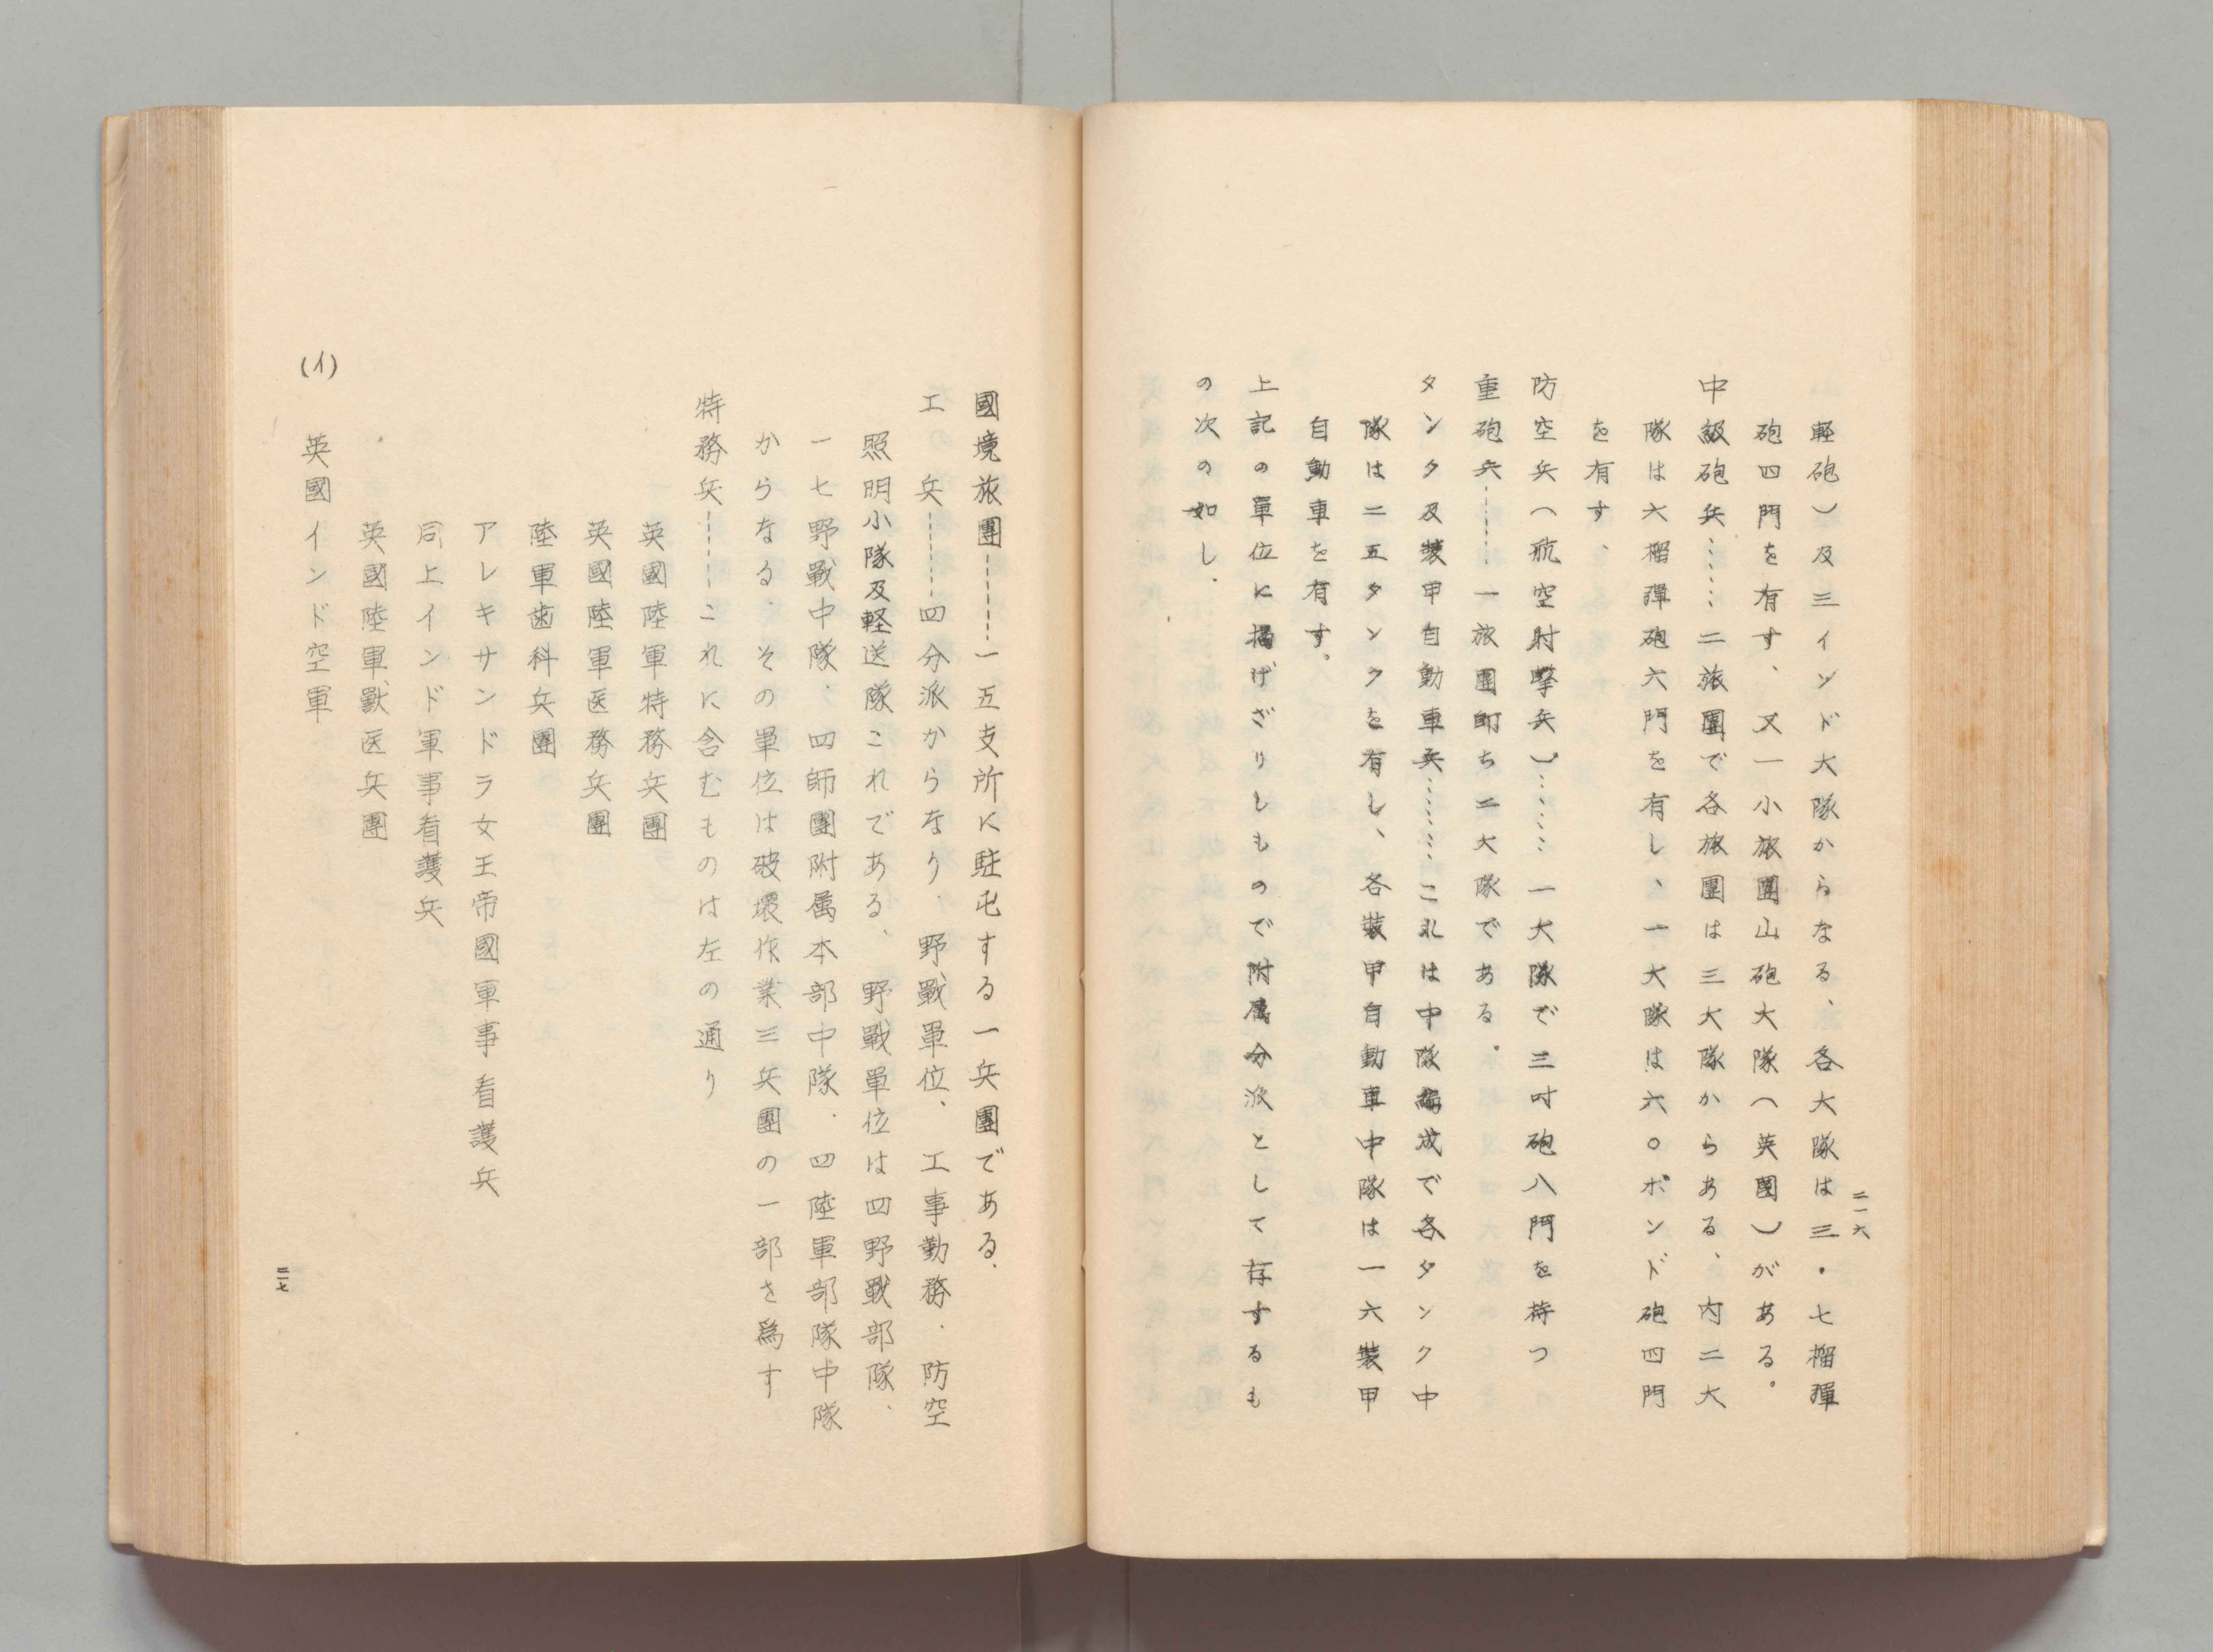 二一六
軽砲)及三インド大隊からなる、各大隊は三・七榴弾
砲四門を有す、又一小旅團山砲大隊(英國)がある。
中級砲兵……二旅團で各旅團は三大隊からある、内二大
隊は六榴弾砲六門を有し、一大隊は六〇ポンド砲四門
を有す、
防空兵(航空射撃兵)……一大隊で三吋砲八門を持つ
重砲兵……一旅團即ち二大隊である。
タンク及装甲自動車兵……これは中隊編成で各タンク中
隊は二五タンクを有し、各装甲自動車中隊は一六装甲
自動車を有す。
上記の單位に掲げざりしもので附属分派として存するも
の次の如し.
國境旅團……一五支所に駐屯する一兵團である.
工 兵……四分派からなり. 野戰單位、工事勤務. 防空
照明小隊及軽送隊これである、野戰單位は四野戰部隊、
一七野戰中隊. 四師團附属本部中隊. 四陸軍部隊中隊
からなる. その單位は破壊作業三兵團の一部を為す
特務兵……これに含むものは左の通り
英國陸軍特務兵團
英國陸軍医務兵團
陸軍歯科兵團
アレキサンドラ女王帝國軍事看護兵
同上インド軍事看護兵
英國陸軍獸医兵團
(イ) 英國インド空軍
二一七